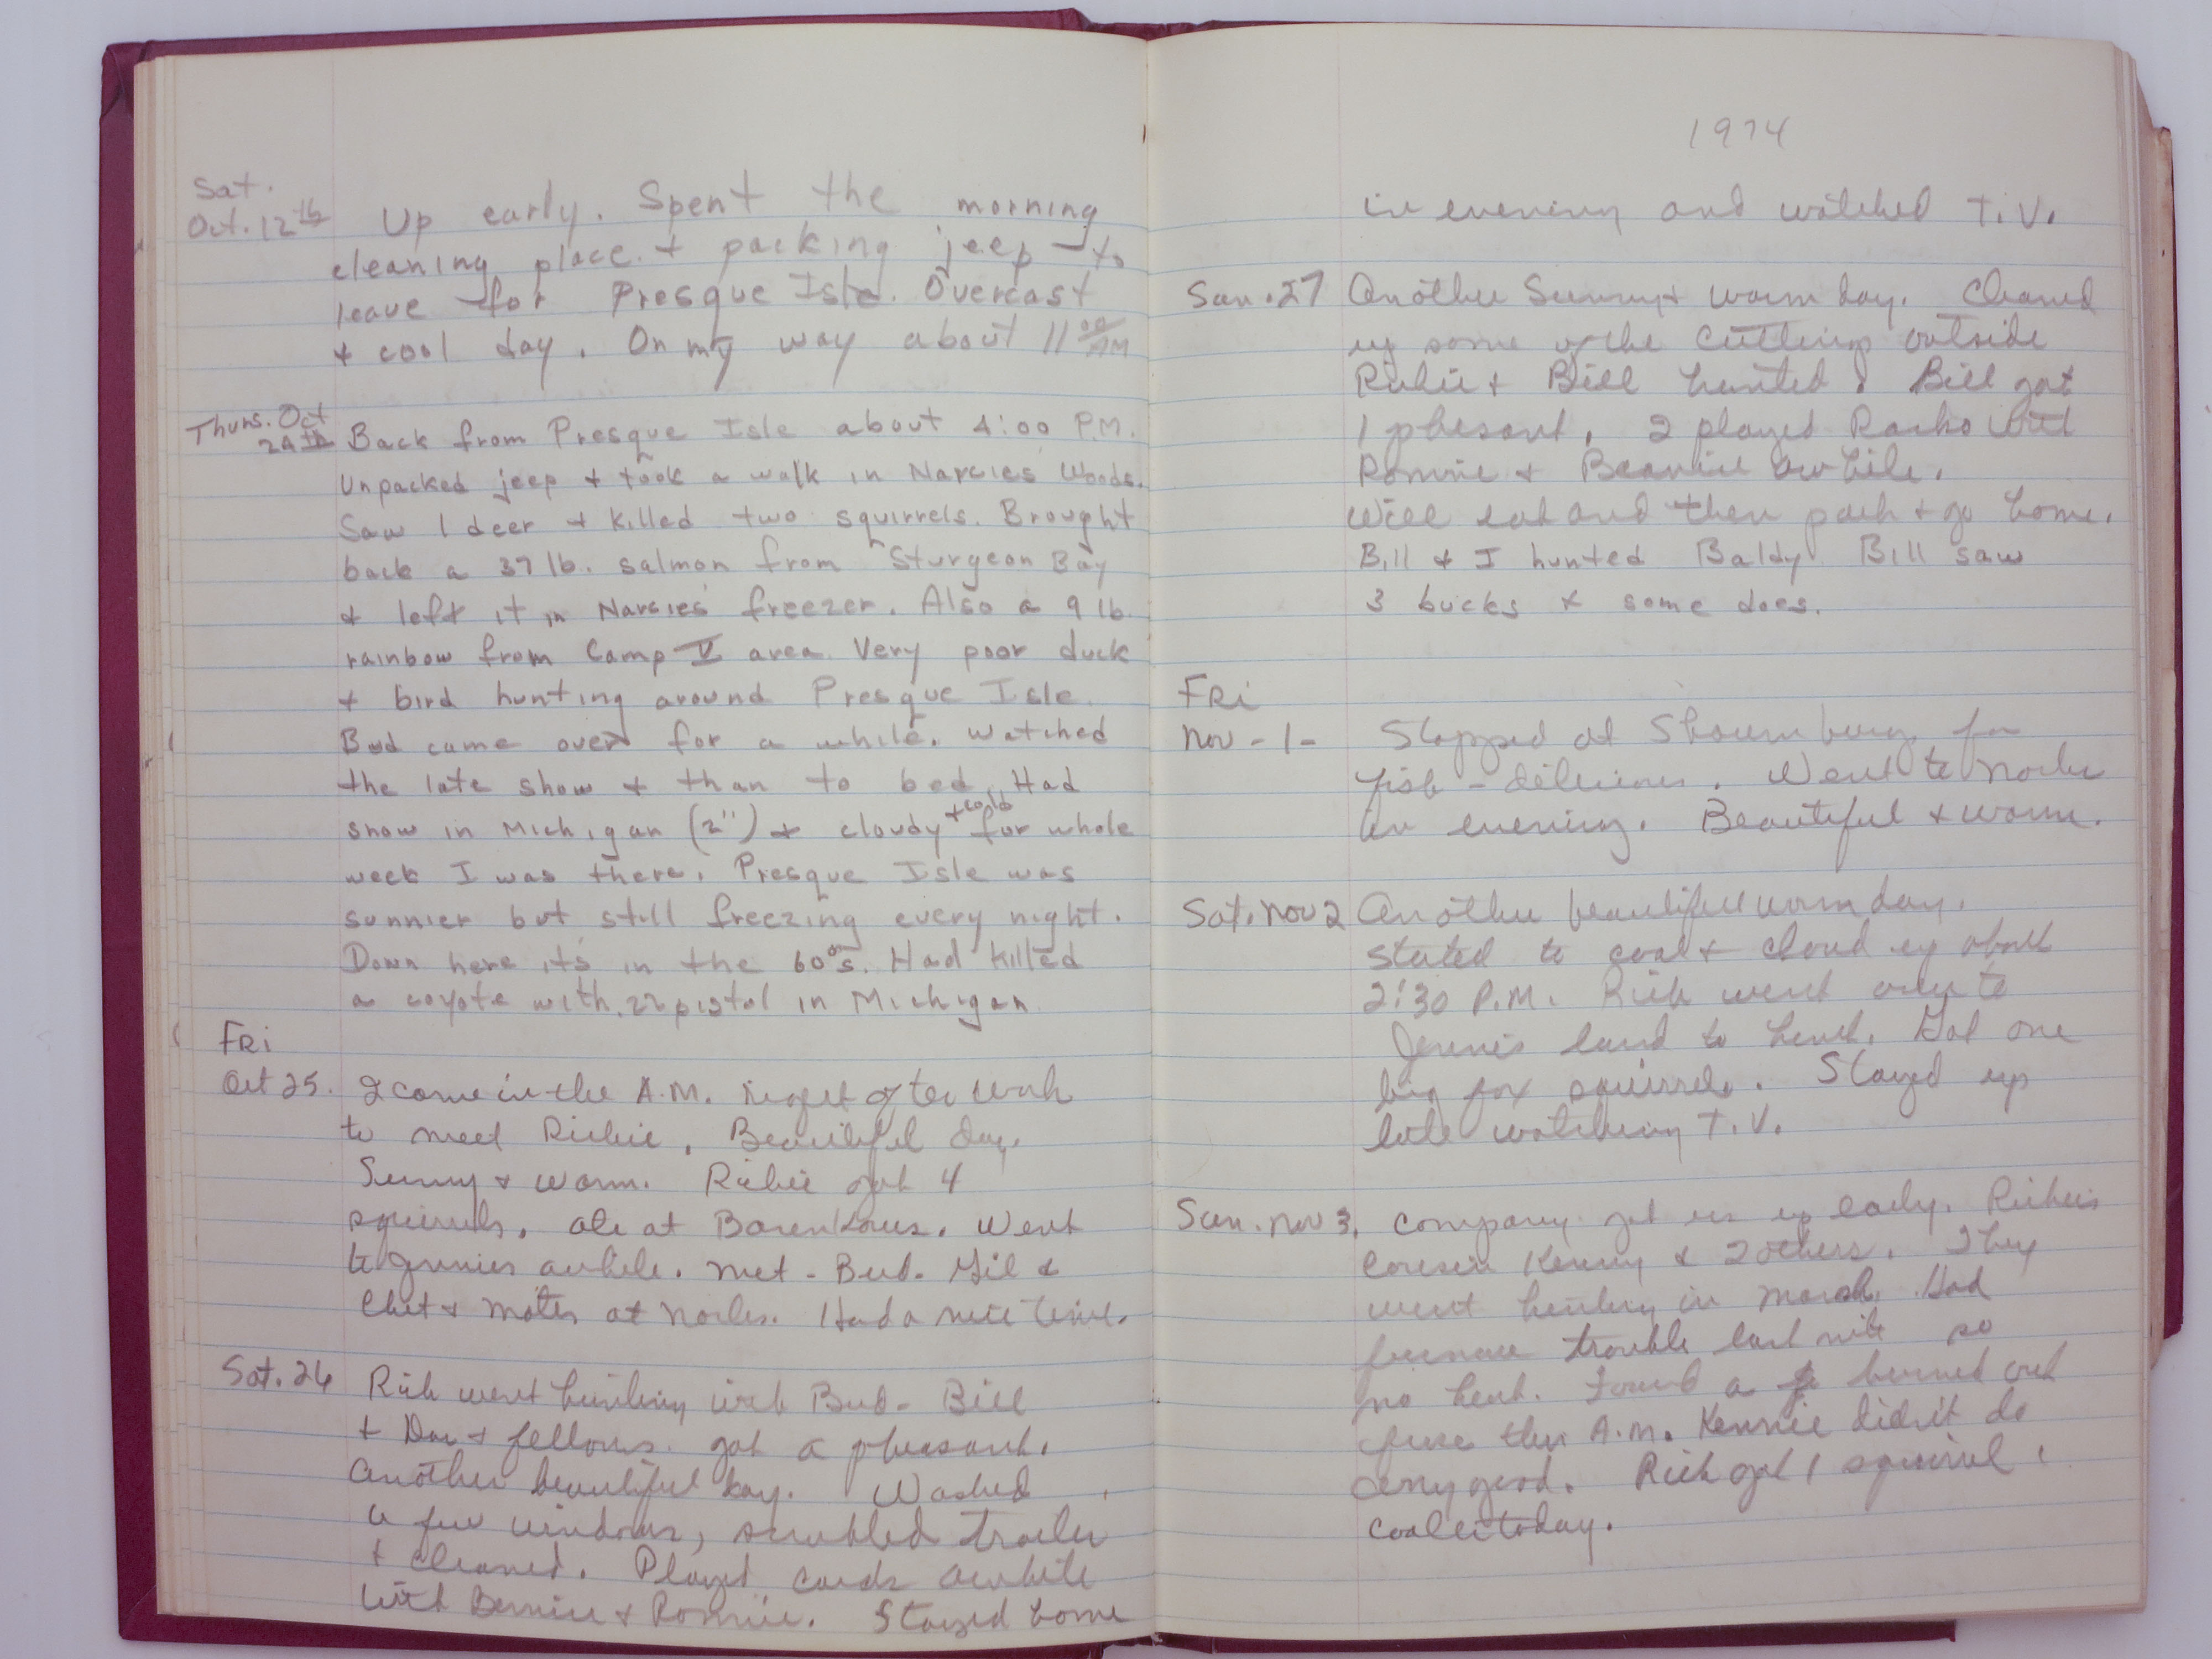 Sat.
Oct. 12th Up early. Spent the morning
cleaning place & packing jeep to
leave for Presque Isle. Overcast
& cool day. On my way about 11 00 AM
Thurs. Oct
24th Back from Presque Isle about 4:00 P.M.
Unpacked jeep & took a walk in Narcies Woods.
Saw 1 deer & killed two squirrels. Brought
back a 37 lb. salmon from Sturgeon Bay
& left it in Narcies freezer. Also a 9 lb.
rainbow from Camp V area. Very poor duck
& bird hunting around Presque Isle.
Bud came over for a while. Watched
the late show & than to bed. Had
snow in Michigan (2") & cloudy + cold for whole
week I was there. Presque Isle was
sunnier but still freezing every night.
Down here its in the 60°s. Had killed
a coyote with .22 pistol in Michigan.
Fri
Oct 25. I came in the A.M. right after work
to meet Richie. Beautiful day.
Sunny & warm. Richie got 4
squirrels. Ate at . Went
to Jennies awhile. Met - Bud - Gil &
Chet & at . Had a nice time.
Sat. 26 Rich went hunting with Bud - Bill
+ & fellows. got a pheasant.
Another beautiful day. Washed
a few windows, scrubbed trailer
+ cleaned. Played cards awhile
with Bernice & Ronnie. Stayed home
1974
in evening and watched T.V.
Sun. 27 Another Sunny & warm day. Cleaned
up some of the cuttings outside
Richie & Bill hunted. Bill got
1 phesant. I played with
Ronnie & Bernice awhile.
Will eat and then pack & go home.
Bill & I hunted Baldy. Bill saw
3 bucks & some does.
Fri
Nov - 1 - Stopped at for
fish - delicious. Went to
in evening. Beautiful & warm.
Sat. Nov 2 Another beautiful warm day.
Started to cool & cloud up about
2:30 P.M. Rich went over to
Jennies land to hunt. Got one
big fox squirrel. Stayed up
late watching T.V.
Sun. Nov 3. Company got us up early. Richie's
Cousin Kenny & 2 others. They
went hunting in marsh. Had
furnace trouble last nite so
no heat. Found a burned out
fuse this A.M. Kennie didn't do
any good. Rich got 1 squirrel.
Cooler today.